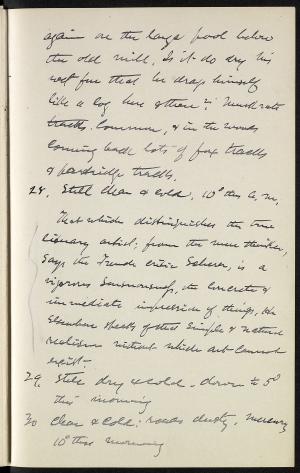 again on the large pool below
the old mill. Is it to dry his
wet fur that he drags himself
like a log here & there? Muskrat
tracks common, & in the woods
coming back lots of fox tracks
& partridge tracks.
28, Still clear & cold, 10° this a, m,
That which distinguishes the true
literary artist; from the mere thinker,
says the French critic Scherer, is a
vigorous sensuousness, the concrete &
immediate impression of things, He
elsewhere speaks of that simple & natural
realism without which art cannot
exist.
29, Still dry & cold. down to 5°
this morning
30 Clear & cold; roads dusty, mercury
10° this morning